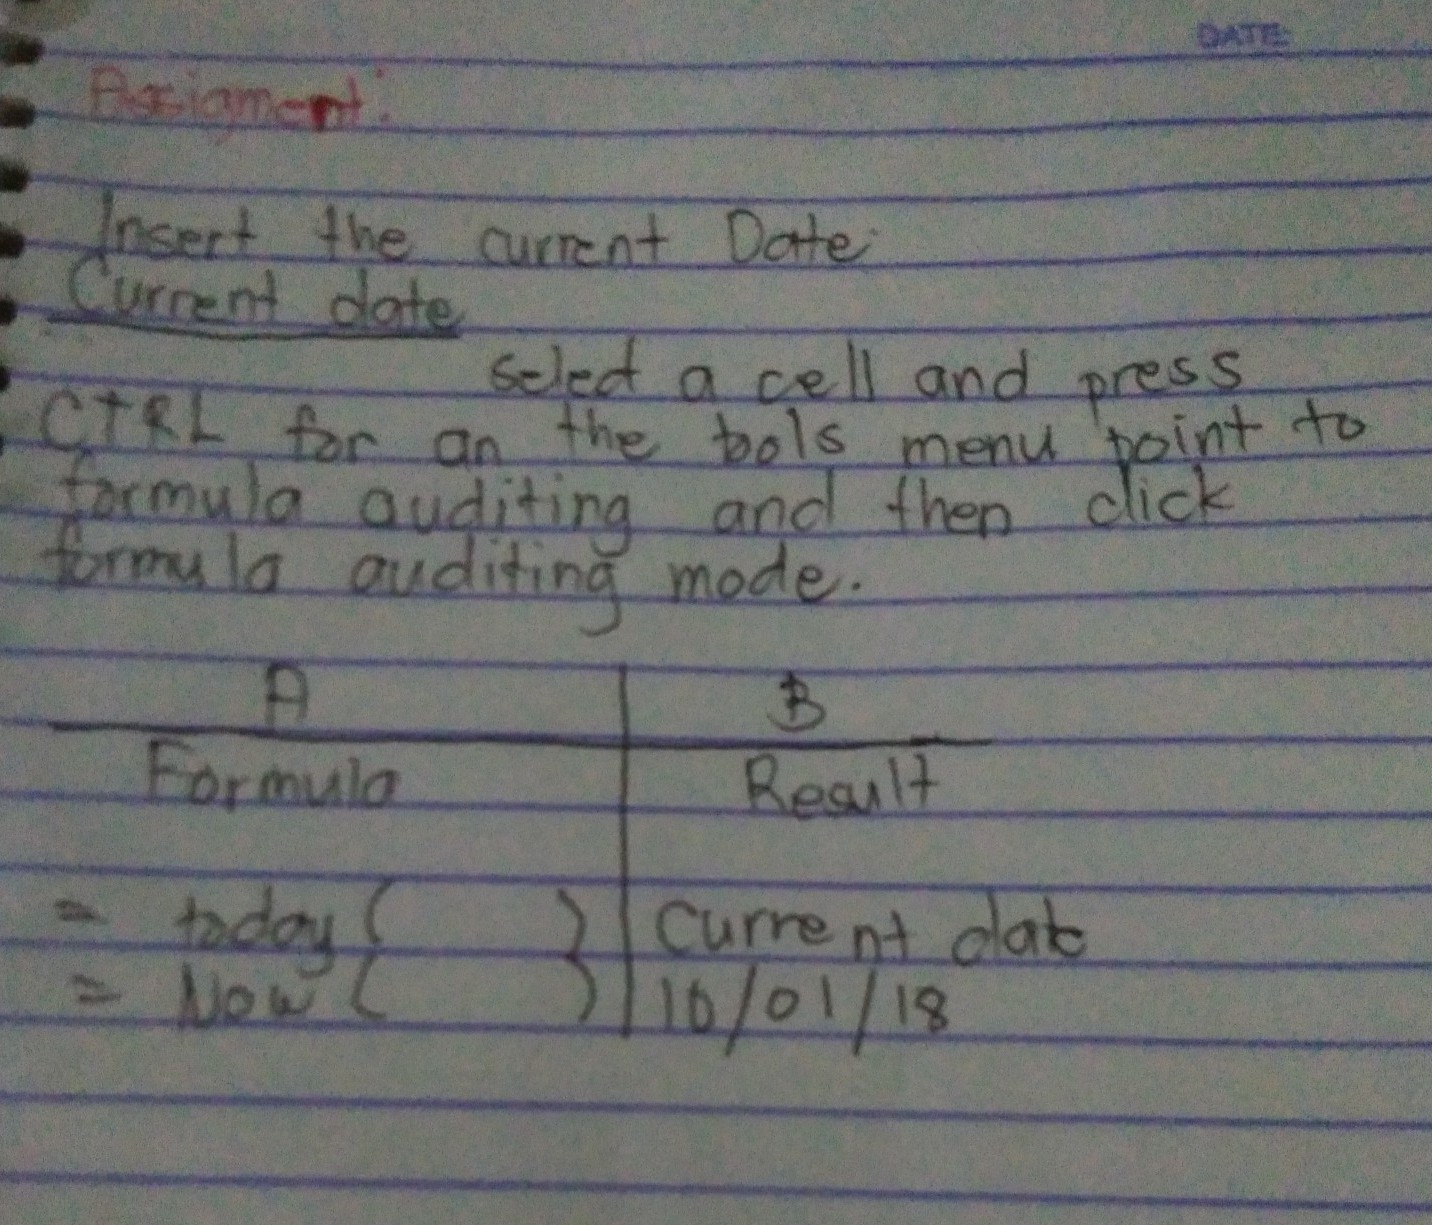 DATE:
Assigment:
Insert the current Date:
Current date
select a cell and press
CTRL for an the tools menu point to
formula auditing and then click
formula auditing mode.
A B
Formula Result
= today ( ) Current date
= Now ( ) 10/01/18